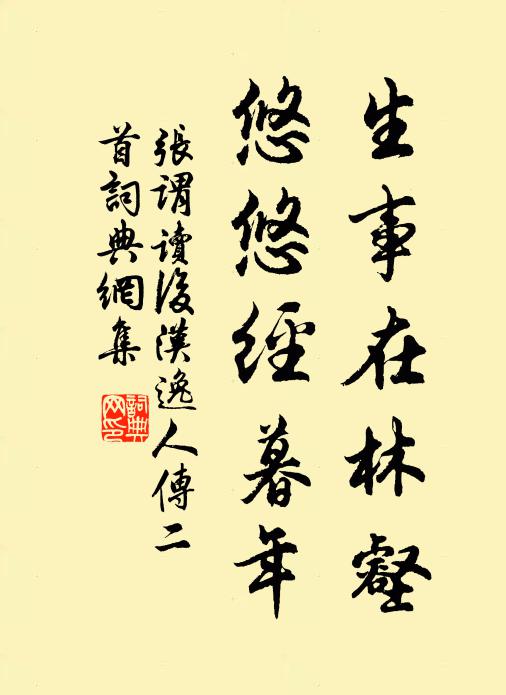 生事在林壑
悠悠經暮年
張謂讀後漢逸人傳二
首詞典網集
詞典網印